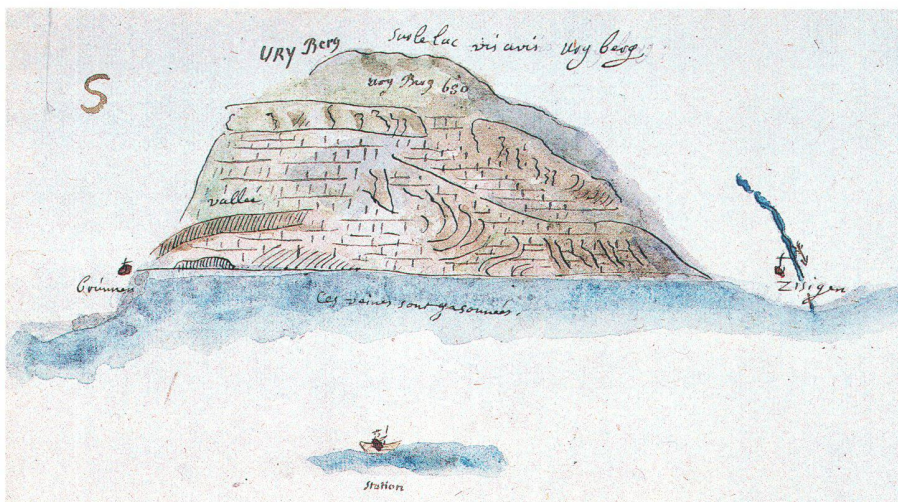 S
URY Berg
sur le lac vis avis Ury berg.
Ury Berg 650
vallée
brünnen
Zisigen
Ces veines sont gasonnées.
station